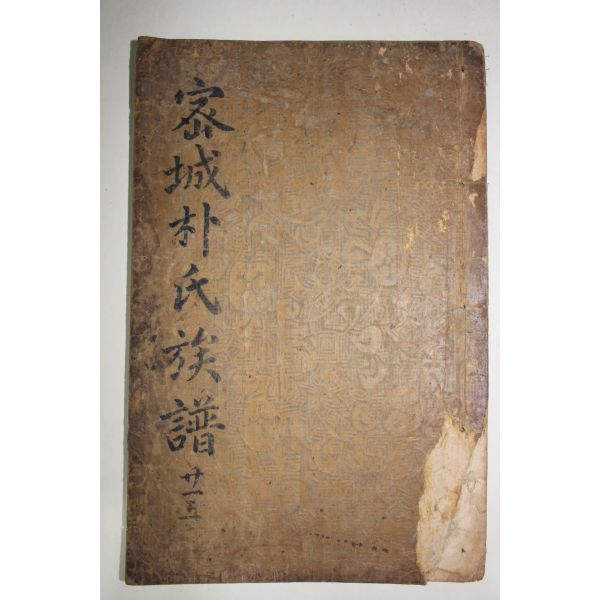 密城朴氏族譜 廿一